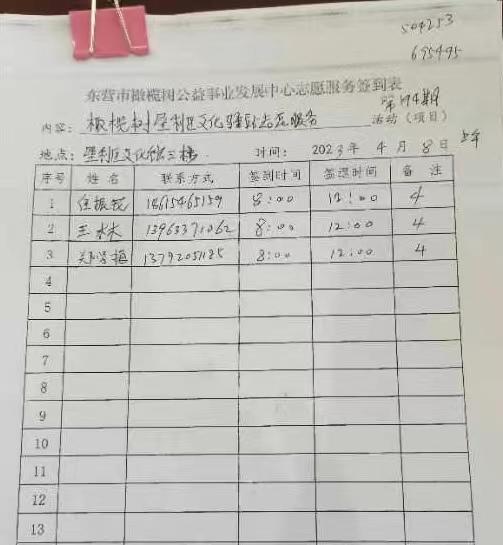 504253
695495
东营市橄榄树公益事业发展中心志愿服务签到表
第194期
内容： 橄榄树垦利区文化驿站志愿服务 活动（项目）
地点：垦利区文化馆三楼 时间： 2023年 4 月 8 日 上午
序号 姓名 联系方式 签到时间 签退时间 备注
1 任振锐 18615465159 8:00 12:00 4
2 王 13963371062 8:00 12:00 4
3 郑 13792051185 8:00 12:00 4
4
5
6
7
8
9
10
11
12
13